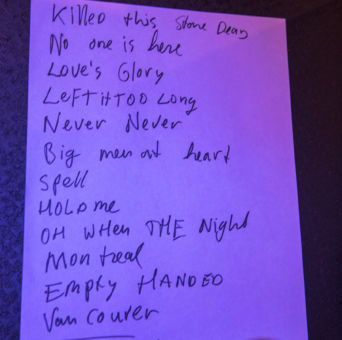 Killed this Stone Dead
No one is here
Love's Glory
Left it too Long
Never Never
Big men at heart
Spell
Hold me
OH WHen THE Night
Montreal
Empty HANDED
Vancouver